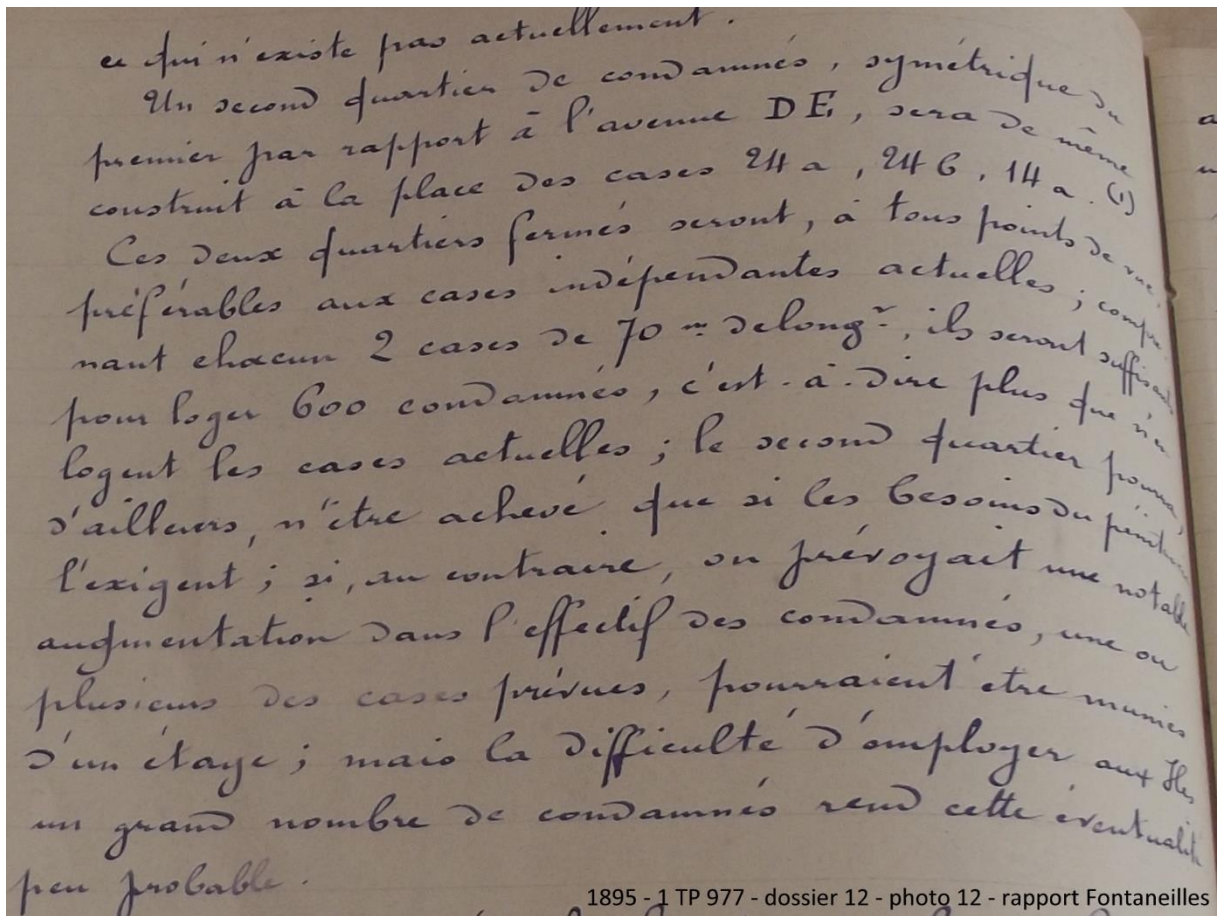 ce qui n'existe pas actuellement.
Un second quartier de condamnés, symétrique du
premier par rapport à l'avenue DE, sera de même
construit à la place des cases 24 a, 24 b, 14 a. (1)
Ces deux quartiers fermés seront, à tous points de vue,
préférables aux cases indépendantes actuelles ; compre-
nant chacun 2 cases de 70 m de longr, ils seront suffisants
pour loger 600 condamnés, c'est-à-dire plus que n'en
logent les cases actuelles ; le second quartier pourra,
d'ailleurs, n'être achevé que si les besoins du
l'exigent ; si, au contraire, on prévoyait une notable
augmentation dans l'effectif des condamnés, une ou
plusieurs des cases prévues, pourraient être munies
d'un étage ; mais la difficulté d'employer aux Iles
un grand nombre de condamnés rend cette éventualité
peu probable.
1895 - 1 TP 977 - dossier 12 - photo 12 - rapport Fontaneilles